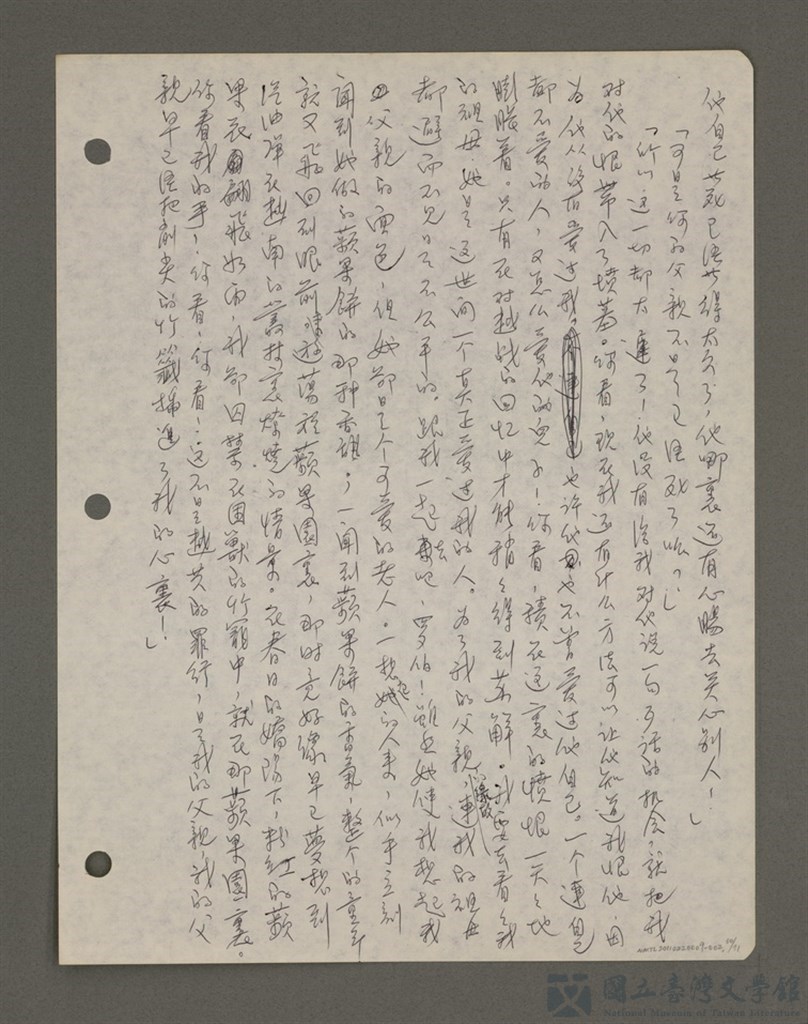 他自己苦已經苦得太久了，他哪裏還有心腸去关心別人！」
「可是你的父親不是已經死了嗎？」
「所以這一切都太遲了！他沒有給我對他說一句可話的机会，就把我
对他的恨帶入了墳墓。你看，現在我还有什么方法可以让他知道我恨他，因
为他从沒有愛过我。也許他也不曾愛过他自己。一个連自己
都不愛的人，又怎么愛他的兒子！你看，積在這裏的憤恨一天天地
膨脹着。只有在对越战的回忆中才能稍稍得到某解。我要去看看我
的祖母，她是這世间一个真正愛过我的人。为了我的父親，連我的祖母
都避而不見是不公平的。跟我一起去吧，罗伯！雖然她使我想起我
父親的面色，但她卻是个可愛的老人。一想起她的人来，似乎立刻
聞到她做的蘋果餅的那种香甜；一聞到蘋果餅的香氣，整个的童年
就又飛回到眼前遊蕩在蘋果園裏，那时竟好像早已夢想到
汽油彈在越南的農村裏燎燒的情景。在春日的嬌陽下，粉红的蘋
果花翩飛如雨，我卻囚禁在困獸的竹籠中，就在那蘋果園裏。
你看我的手！你看，你看！這不是越共的罪行，是我的父親，我的父
親早已經把削尖的竹籤插進了我的心裏！」
國立臺灣文學館
National Museum of Taiwan Literature